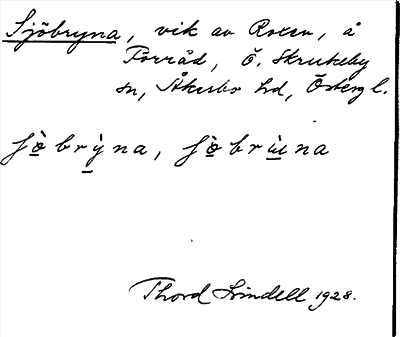 Sjöbryna, vik av Roxen, å
Förråd, Ö. Skrukeby
sn, Åkerbo hd, Östergl.
ʃö̀bry̆̀na, ʃö̀brùna
Thord Lindell 1928.